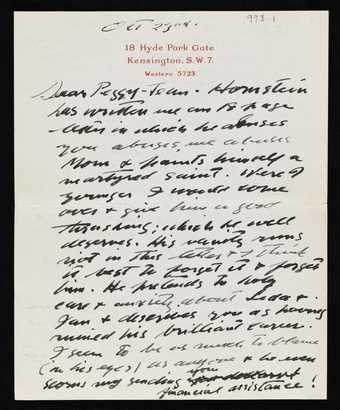 Oct 29th.
993.1
18 Hyde Park Gate
Kensington, S.W.7.
Western 5723.
Dear Peggy-Jean. Hornstein
has written me an 18 page
letter in which he abuses
you abuses, me abuses
Mom & paints himself a
martyred saint. Were I
younger I would come
over & give him a good
thrashing, which he well
deserves. His vanity runs
riot in this letter & I think
it best to forget it & forget
him. He pretends to holy
care & anxiety about Leda &
Ian. & describes you as having
ruined his brilliant career.
I seem to be as much to blame
(in his eyes) as anyone & he even
scorns my sending you
financial assistance!